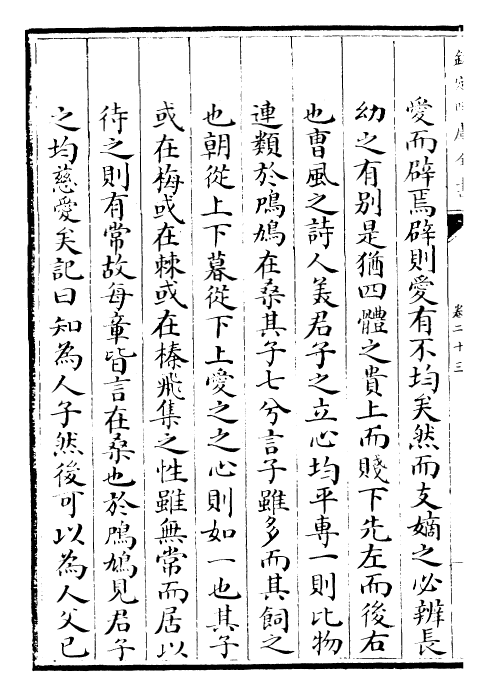 欽定四庫全書
卷二十三
愛而辟焉辟則愛有不均矣然而支嫡之必辨長
幼之有別是猶四體之貴上而賤下先左而後右
也曹風之詩人美君子之立心均平專一則比物
連類於鳲鳩在桑其子七兮言子雖多而其飼之
也朝從上下暮從下上愛之之心則如一也其子
或在梅或在棘或在榛飛集之性雖無常而居以
待之則有常故每章皆言在桑也於鳲鳩見君子
之均慈愛矣記曰知為人子然後可以為人父已